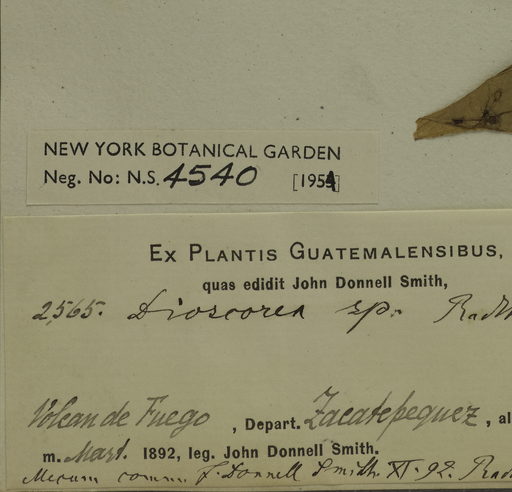 NEW YORK BOTANICAL GARDEN
Neg. No: N.S. 4540 [1954]
EX PLANTIS GUATEMALENSIBUS,
quas edidit John Donnell Smith,
2,565. Dioscorea sp. Radlk
Volcan de Fuego , Depart. Zacatepequez , al
m. Mart. 1892, leg. John Donnell Smith.
Mecum comm. J. Donnell Smith XI. 92. Radlk